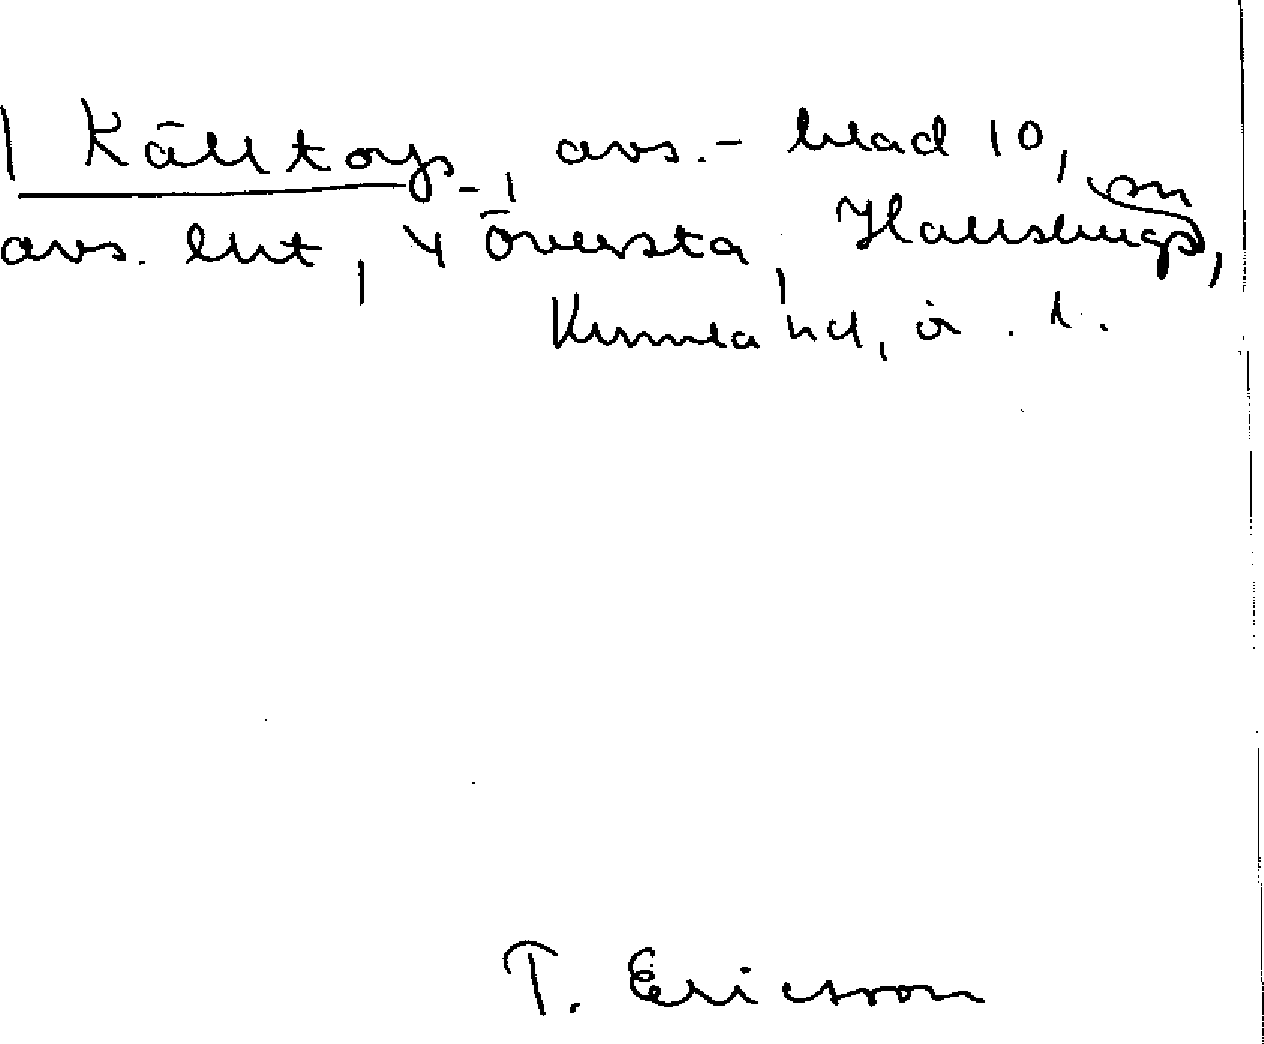 1 Källtorps-, avs.- blad 10, sn
avs. ent, Y Översta, Hallsbergs,
Kumla hd, ö. l.
T. Ericsson